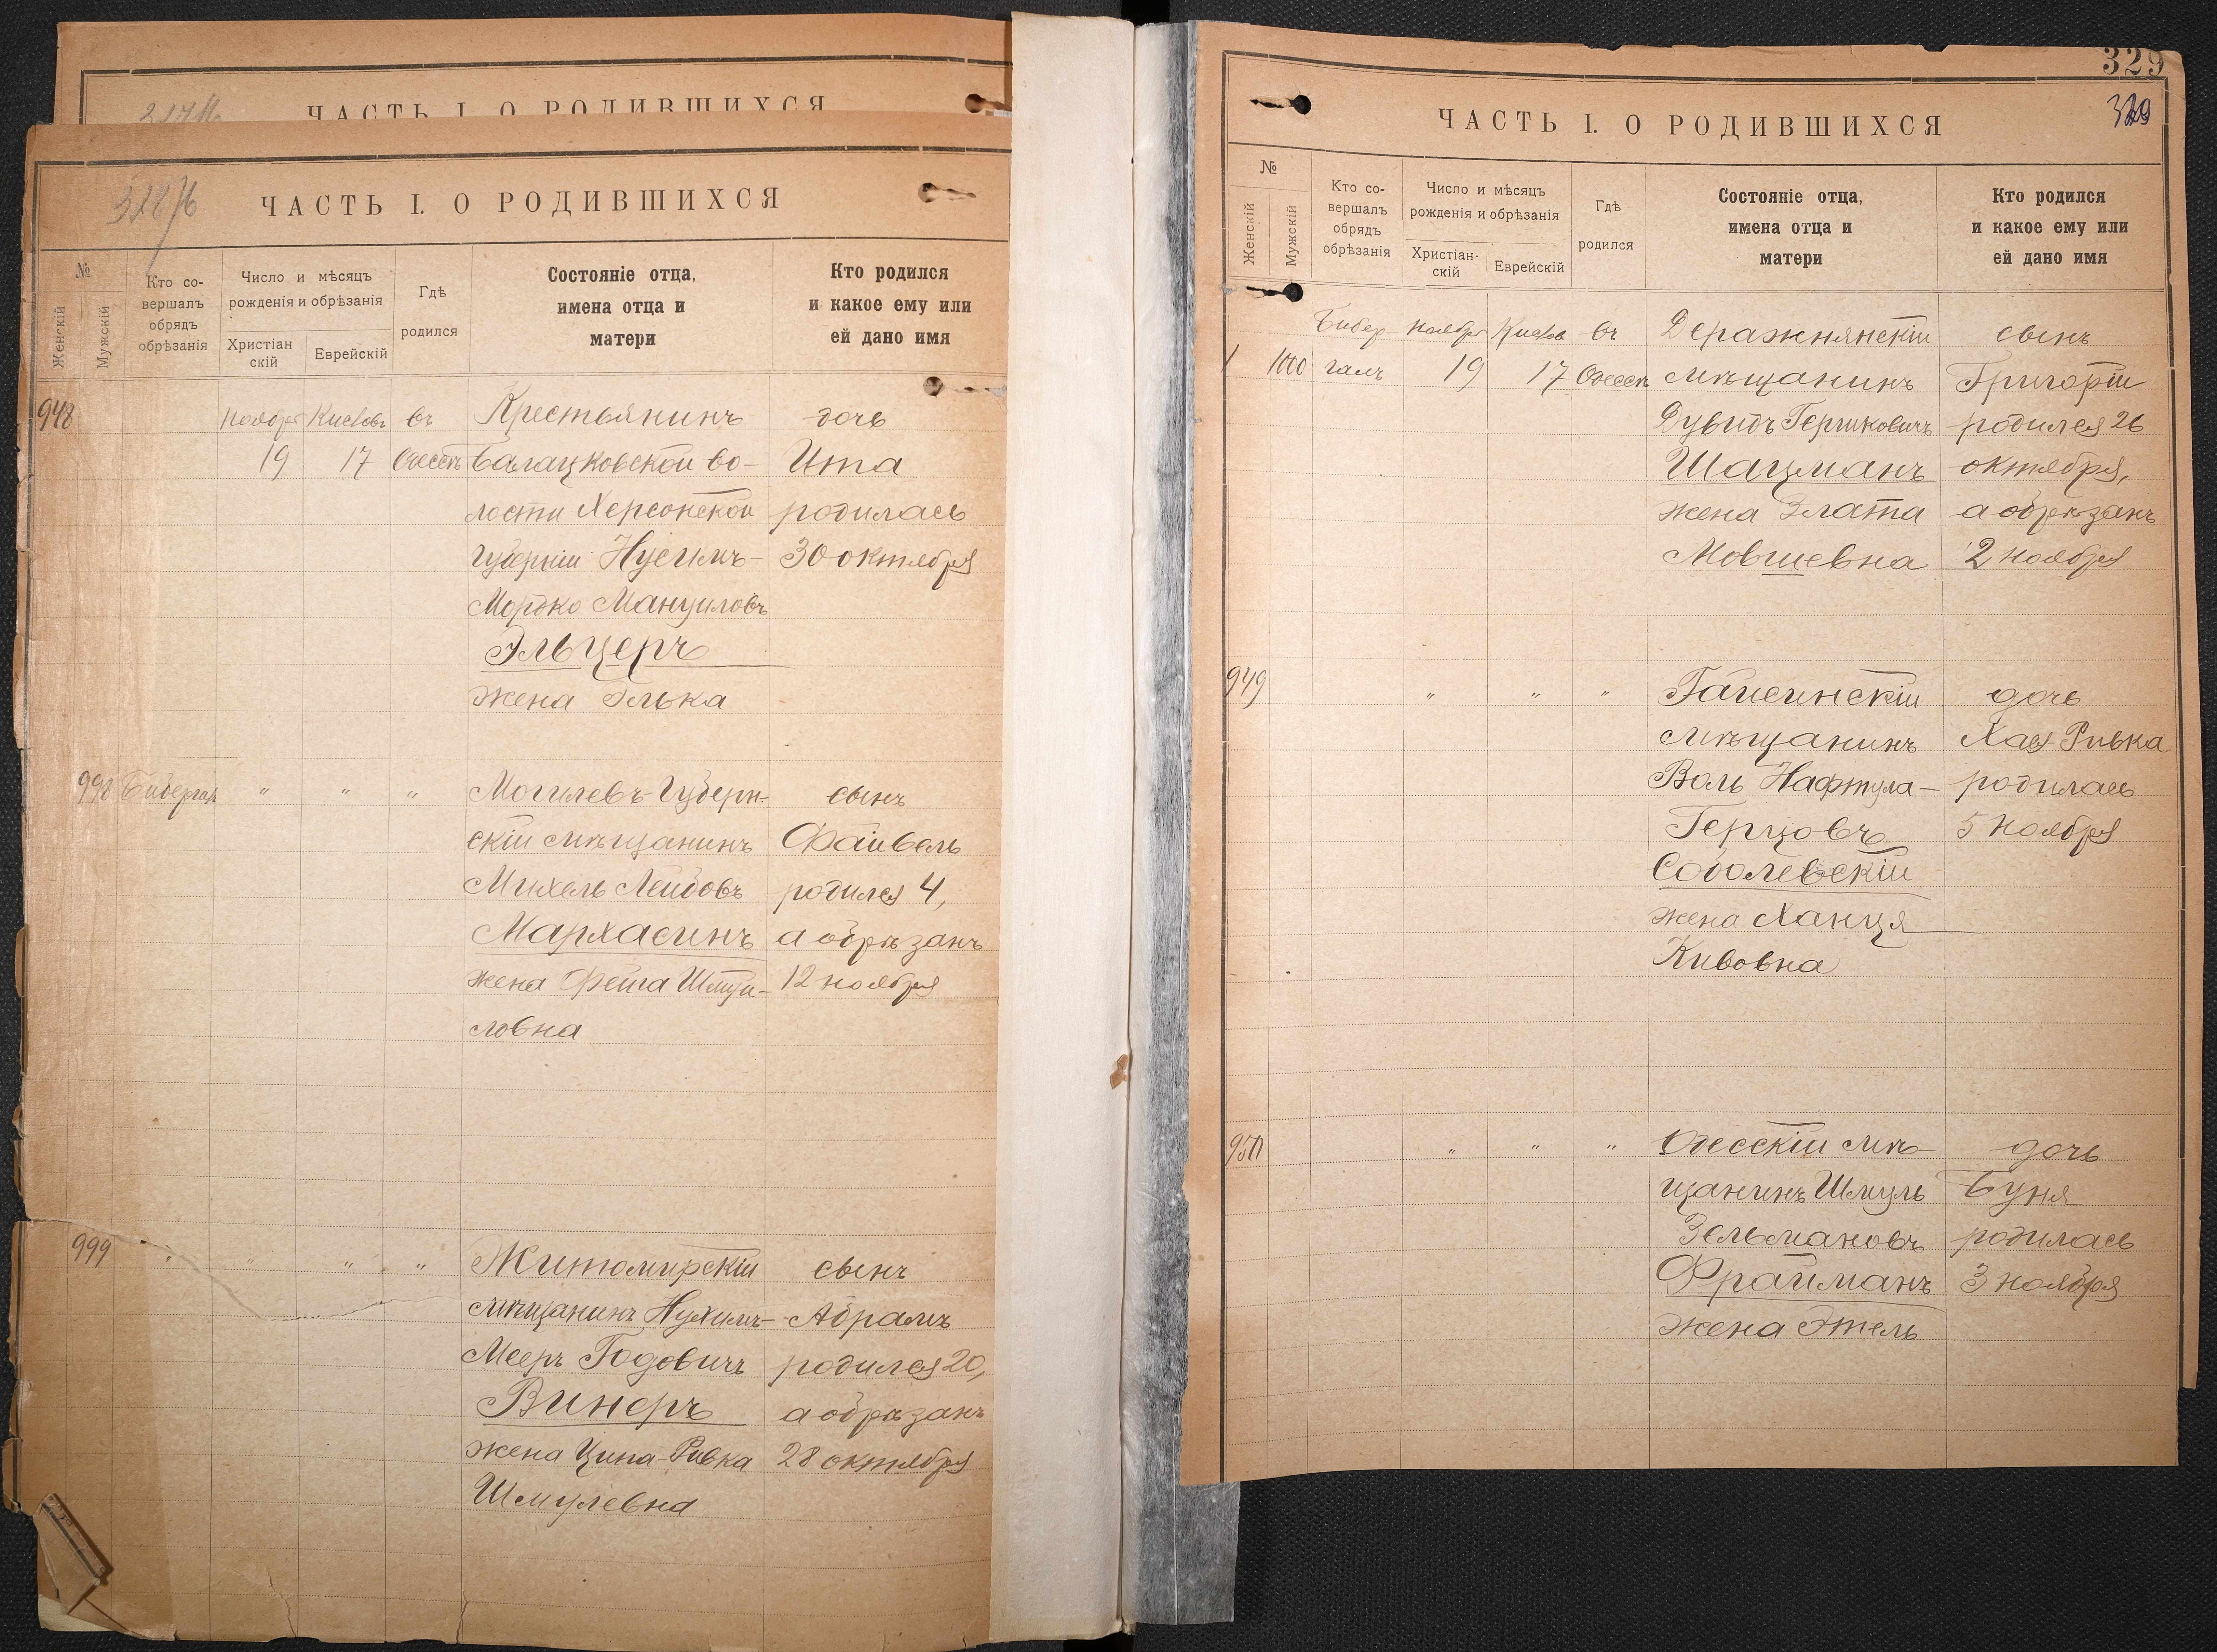 ЧАСТЬ I. О РОДИВШИХСЯ
ЧАСТЬ I. О РОДИВШИХСЯ
№
Женскій
Мужскій
Кто со-
вершалъ
обрядъ
обрѣзанія
Число и мѣсяцъ
рожденія и обрѣзанія
Христіан
скій
Еврейскій
Гдѣ
родился
Состояніе отца,
имена отца и
матери
Кто родился
и какое ему или
ей дано имя
948 Ноября Кислевъ въ Крестьянинъ дочь
19 17 Одессѣ Балацковской во- Ита
лости Херсонской родилась
губерніи Нусимъ- 30 октября
Мордко Мануиловъ
Эльцеръ
жена Элька
998 Бибергалъ " " " Могилевъ-Губерн- сынъ
скій мѣщанинъ Файвель
Михель Лейбовъ родился 4,
Мархасинъ а обрѣзанъ
жена Фейга Шмуй- 12 ноября
ловна
999 " " " " Житомирскій сынъ
мѣщанинъ Нухимъ- Абрамъ
Мееръ Годовичъ родился 20,
Винеръ а обрѣзанъ
жена Ципа-Ривка 28 октября
Шмулевна
329
329
ЧАСТЬ I. О РОДИВШИХСЯ
№
Женскій
Мужскій
Кто со-
вершалъ
обрядъ
обрѣзанія
Число и мѣсяцъ
рожденія и обрѣзанія
Христіан-
скій
Еврейскій
Гдѣ
родился
Состояніе отца,
имена отца и
матери
Кто родился
и какое ему или
ей дано имя
Бибер Ноября Кислевъ въ Деражнянскій сынъ
1000 галъ 19 17 Одессѣ мѣщанинъ Григорій
Дувидъ Гершковичъ родился 26
Шацманъ октября,
жена Злата а обрѣзанъ
Мовшевна 2 ноября
949 " " " Гайсинскій дочь
мѣщанинъ Хая-Ривка
Воль Нафтула- родилась
Герцовъ 5 ноября
Соболевскій
жена Ханця
Кивовна
950 " " " Одесскій мѣ- дочь
щанинъ Шмуль Буня
Зельмановъ родилась
Фрайманъ 3 ноября
жена Этель